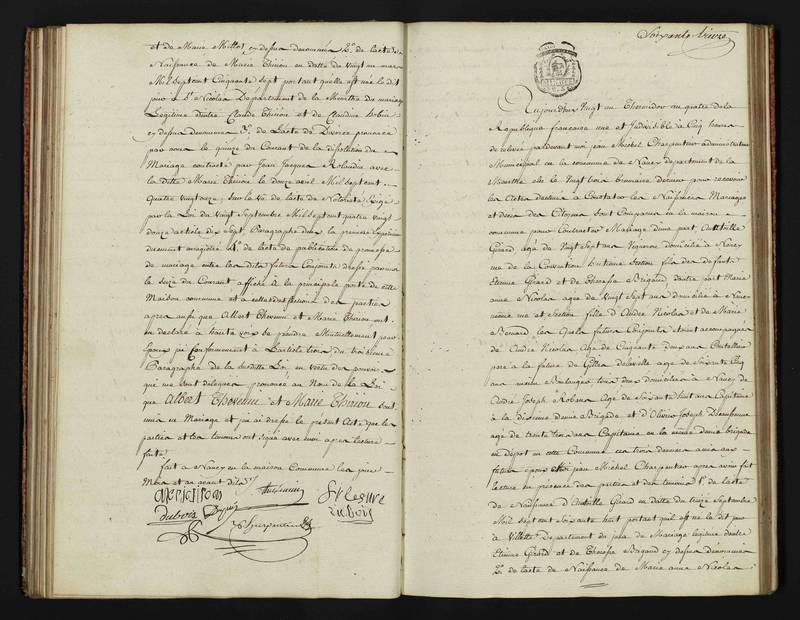 et de Marie Millot cy dessus denommés 2º. de l'acte de
Naissance de Marie Thirion en datte du vingt un mars
Mil sept cent Cinquante Sept portant qu'elle est née le dit
jour à St. Nicolas Département de la Meurthe du mariage
Légitime d'entre Claude Thirion et de Claudine
cy dessus denommés 3º. de L'acte de Divorce prononcé
par nous le quinze du Courant de la dissolution du
Mariage contracté par Jean Jacques avec
la ditte Marie Thirion le douze avril Mil sept cent
quatre vingt onze. Sur le vu de l'acte de Notoriété Exigé
par la Loi du vingt Septembre Mil sept cent quatre vingt
douze article dix Sept, Paragraphe deux la premiere Expedition
duement enregistrée 4º. de l'acte de publication de promesse
de mariage entre les dits futurs Conjoints dressé par nous
le Seize du Courant affiché à la principale porte de cette
Maison commune et a celle des Sections des parties
après aussi que Albert Thevenin et Marie Thirion ont
déclaré à haute voix se prendre Mutuellement pour
Epoux j'ai Conformément à L'article trois, du troisieme
Paragraphe de la susditte Loi, en vertu des pouvoirs
qui me sont delegués prononcé au Nom de La Loi
que Albert Thevenin et Marie Thirion sont
unis en Mariage et j'ai dressé le présent Acte que les
parties et les temoins ont signé avec moi après lecture
faite.
fait à Nancy en la maison Commune les jour
Mois et an avant dits
Thevenin
dubois
Charpentier
Soixante treize
Aujourdhui Vingt un Thermidor an quatre de la
Republique francaise une et Indivisible à Cinq heures
de relevée pardevant moi jean Michel Charpentier administrateur
Municipal en la commune de Nancy departement de la
Meurthe élu le Vingt trois brumaire dernier pour recevoir
les Actes destinés à Constater les Naissances Mariages
et décès des Citoyens Sont Comparus en la maison
commune pour Contracter Mariage d'une part
Girard agé de Vingt Sept ans Vigneron domicilié à Nancy
rue de la Convention huitieme Section fils des defunts
Etienne Girard et de Therese Brigaud, d'autre part Marie
anne Nicolas agée de Vingt Sept ans domiciliée à Nancy
même rue et Section fille d'André Nicolas et de Marie
Bernard les quels futurs Conjoints etoient accompagnés
de André Nicolas Agé de Cinquante deux ans Coutellier
pere à la future de Gilles agé de Soixante Cinq
ans ancien Boulanger tous deux domiciliés à Nancy de
Claude Joseph Robans Agé de Soixante huit ans Capitaine
à la dixieme demie Brigade et d'Olivier Joseph
age de trente trois ans Capitaine en la même demie brigade
en depot en cette Commune ces trois derniers amis aux
futurs epoux Moi jean Michel Charpentier apres avoir fait
lecture en presence des parties et des temoins 1º. de l'acte
de Naissance d' Girard en datte du treize Septembre
Mil sept cent Soixante huit portant qu'il est né le dit jour
à Villette Departement du jura de Mariage legitime d'entre
Etienne Girard et de Therese Brigaud cy dessus denommés
2º. de l'acte de Naissance de Marie anne Nicolas